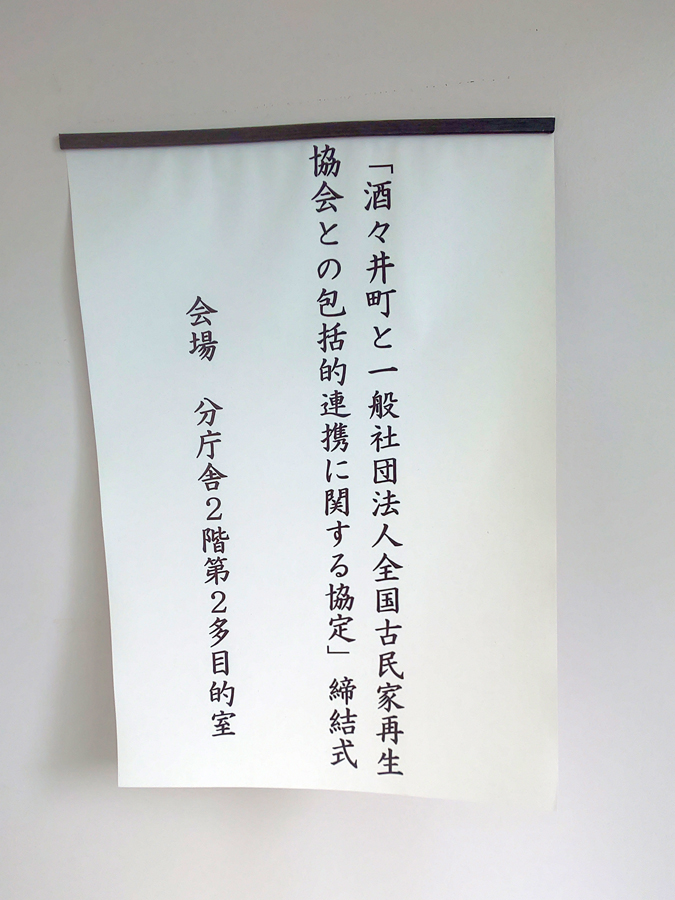 「酒々井町と一般社団法人全国古民家再生
協会との包括的連携に関する協定」締結式
会場　分庁舎２階第２多目的室